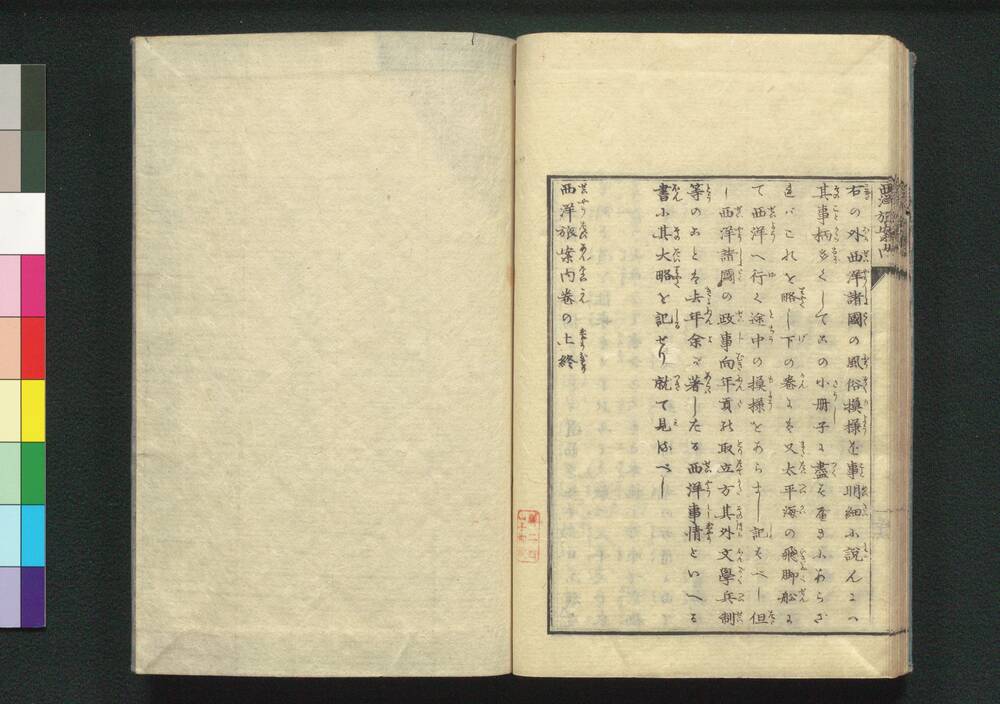 西洋旅案内
右の外西洋諸國の風俗模様を事明細に説んには
其事柄多くしてこの小冊子に盡すべきにあらざ
れバこれを略し下の巻にハ又太平海の飛脚舩に
て西洋へ行く途中の模様をあらまし記すべし但
し西洋諸國の政事向年貢の取立方其外文學兵制
等のことハ去年余が著したる西洋事情といへる
書に其大略を記せり就て見るべし
西洋旅案内巻の上終